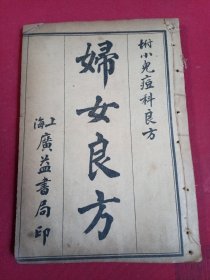 附小兒痘科良方
婦女良方
上海廣益書局印